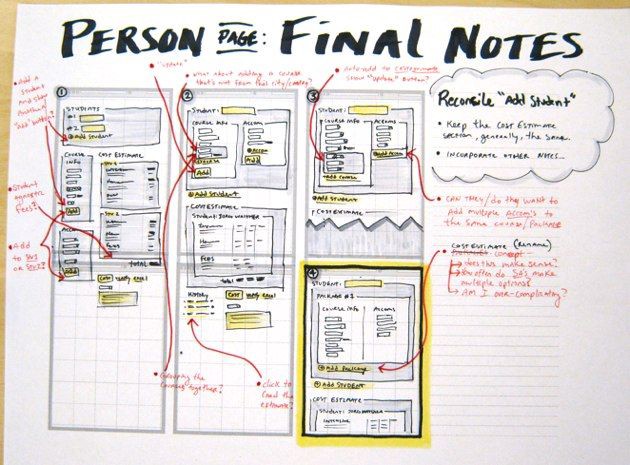 PERSON PAGE: FINAL NOTES
"update"
Add a
Student
and
Another
"Add" button?
What about adding a course
that's not from that city/country?
Auto-add to
Show "Update" Button?
Reconcile "Add Student"
• Keep the Cost Estimate
Section, generally, the same.
• Incorporate other notes...
1
Students
#1
#2
+ Add Student
Course
Info
Cost Estimate
Stu 1
Add
Stu 2
Accom
Fees
Add
Total
Cost
Verify Email
Student
Fees?
Add
to Stu1
or Stu2?
2
Student:
Course Info
Accom
+ Accom
Add
Add
+ Add Student
Cost Estimate
Student:
Fees
Total
History
Cost
Verify Email
Grouping the
Courses together?
click to
the
estimate?
3
Student:
Course Info
Accoms
+ Add Course
+ Add Accom
+ Add Student
Cost Estimate
• Can they/do they want to
Add multiple Accom's to
the same course/package
4
Student:
Package #1
Course Info
Accoms
+ Add Package
+ Add Student
Cost Estimate
Student:
Cost Estimate (Rename)
Parallel concept
Does this make sense?
often do SA's make
multiple options?
Am I over-complicating?